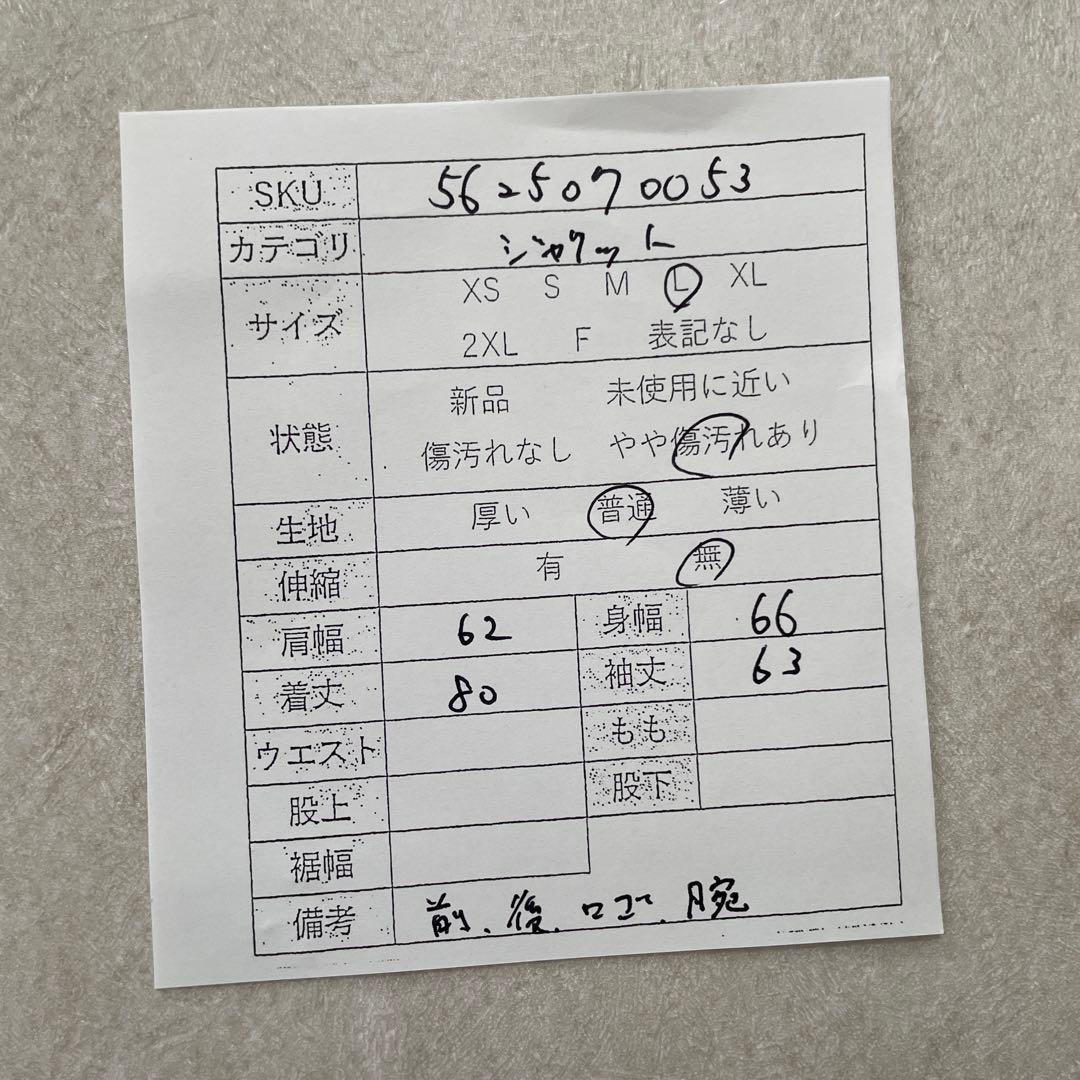 SKU 5625070053
カテゴリ ジャケット
サイズ XS S M L XL
2XL F 表記なし
状態 新品 未使用に近い
傷汚れなし やや傷汚れあり
生地 厚い 普通 薄い
伸縮 有 無
肩幅 62 身幅 66
着丈 80 袖丈 63
ウエスト もも
股上 股下
裾幅
備考 前、後、ロゴ、腕